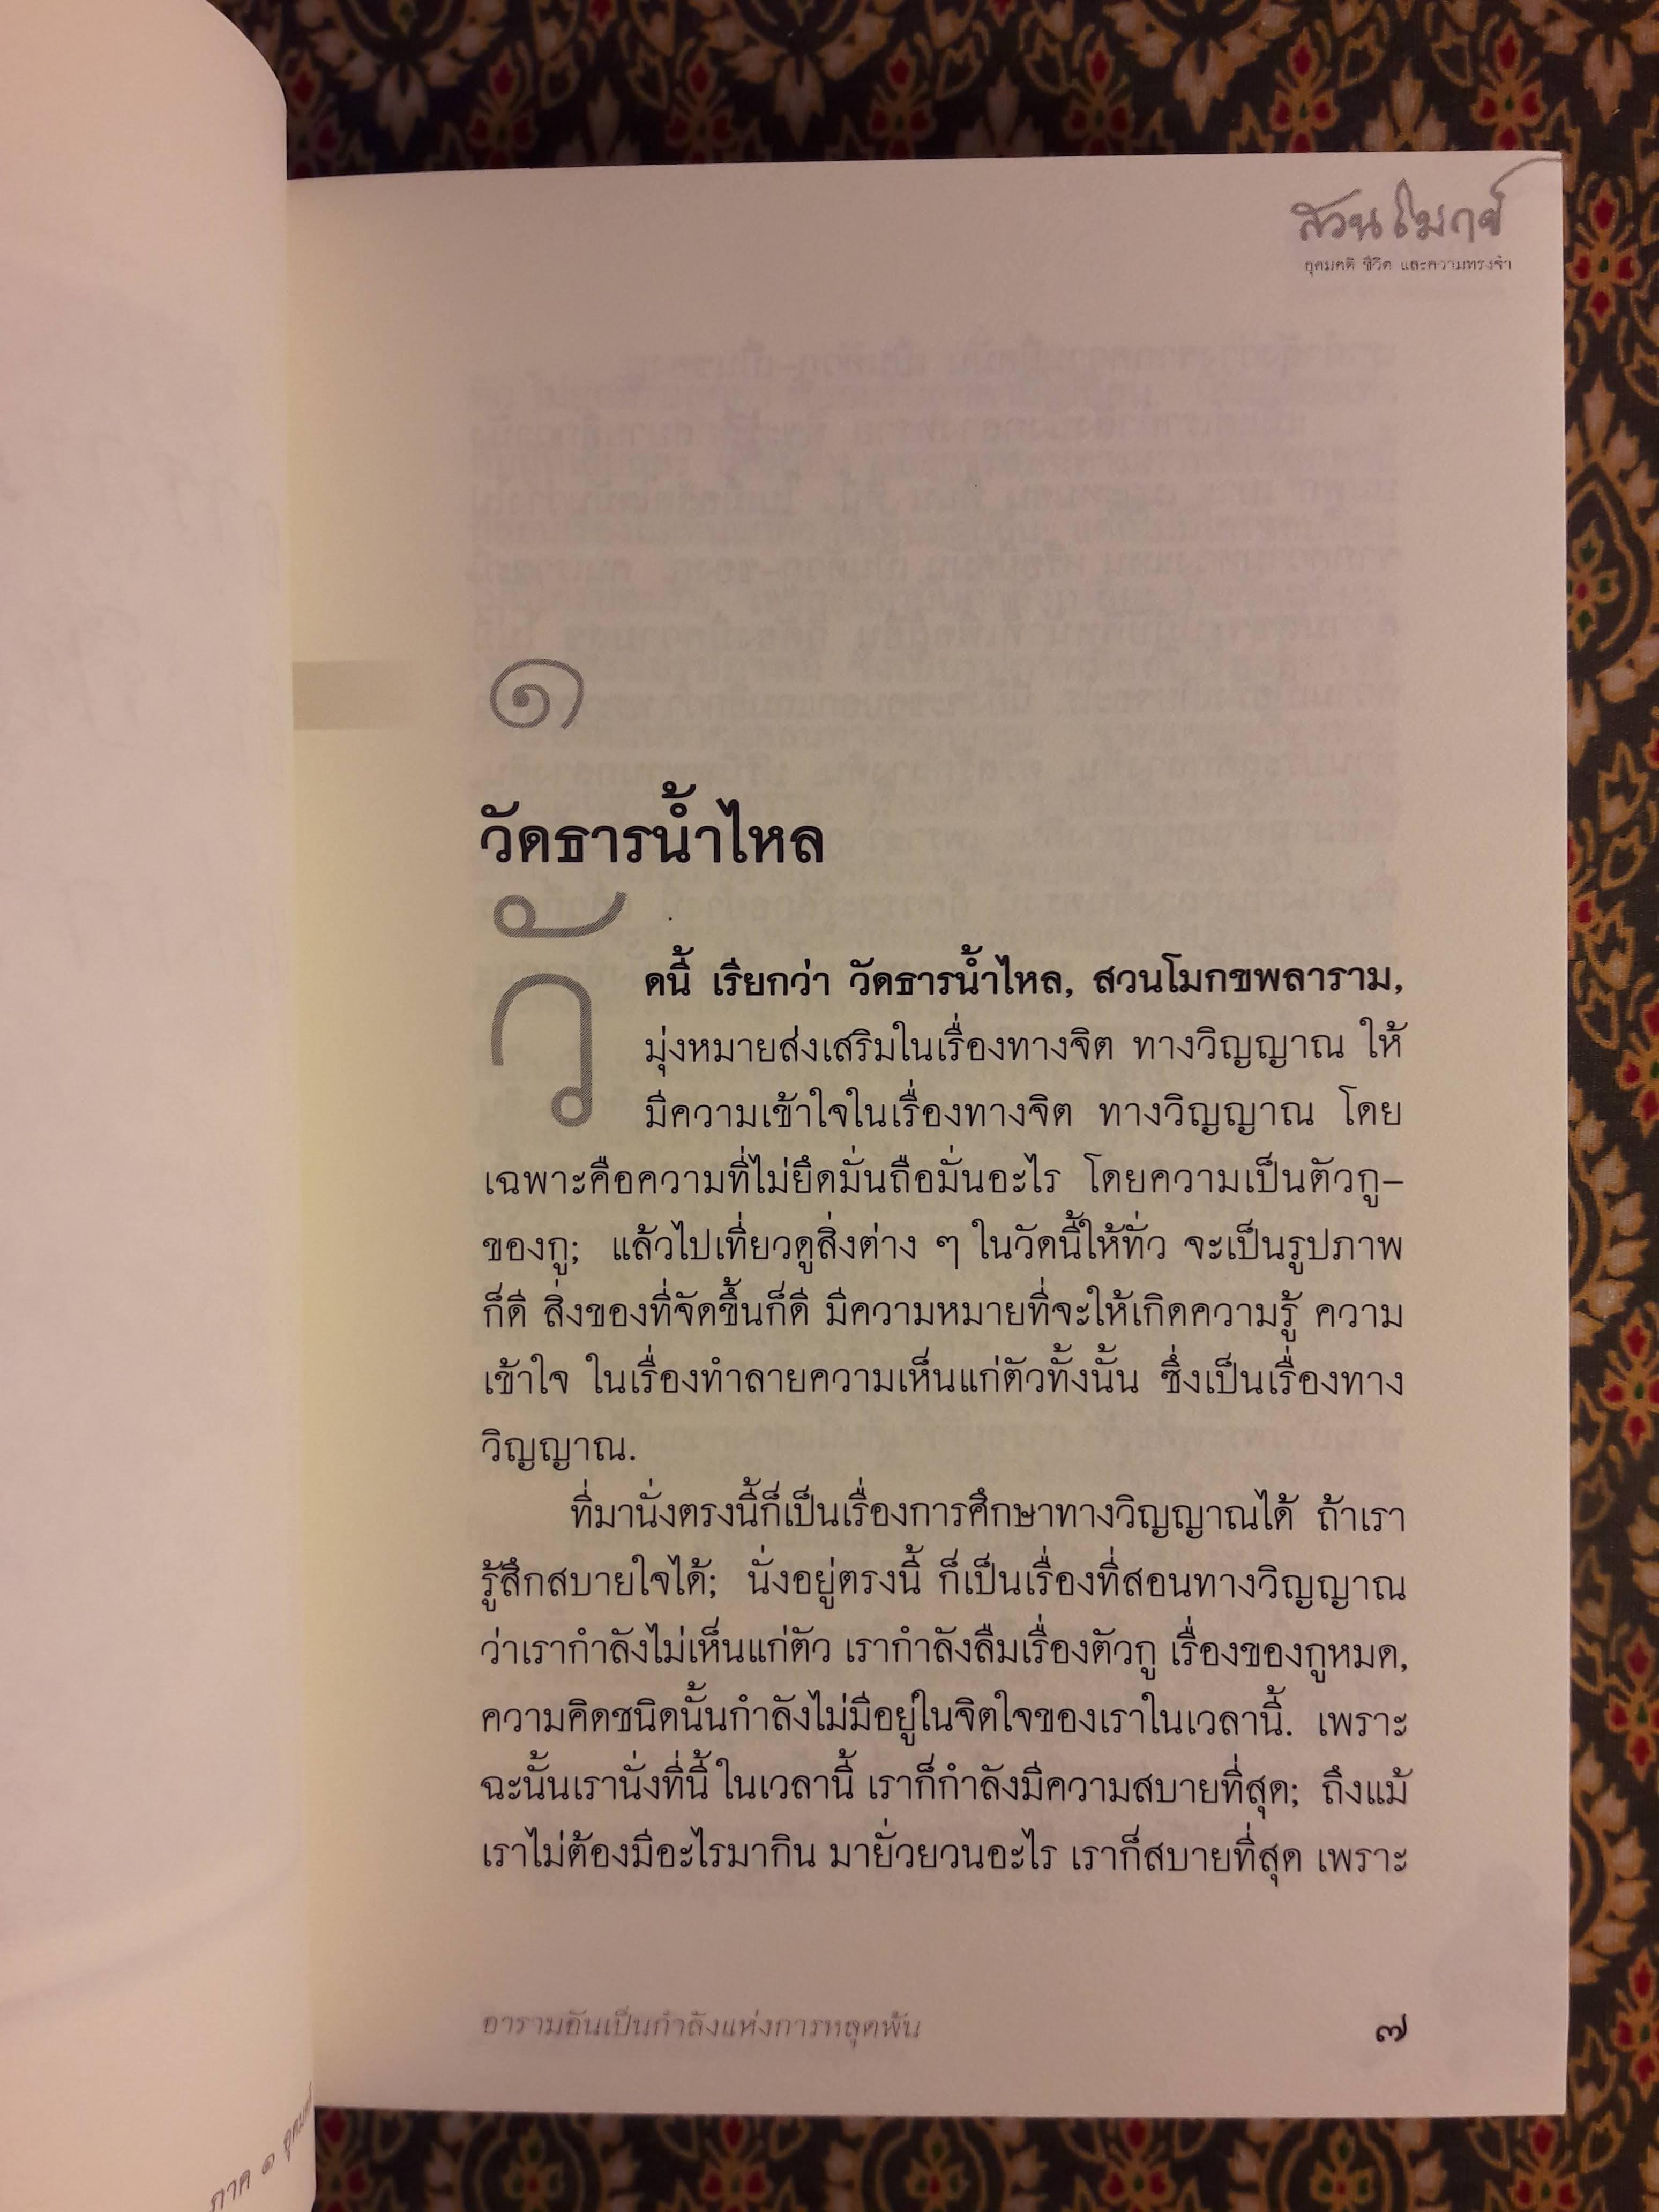 สวนโมกข์
อุดมคติ ชีวิต และความทรงจำ
๑
วัดธารน้ำไหล
วัดนี้ เรียกว่า วัดธารน้ำไหล, สวนโมกขพลาราม,
มุ่งหมายส่งเสริมในเรื่องทางจิต ทางวิญญาณ ให้
มีความเข้าใจในเรื่องทางจิต ทางวิญญาณ โดย
เฉพาะคือความที่ไม่ยึดมั่นถือมั่นอะไร โดยความเป็นตัวกู–
ของกู; แล้วไปเที่ยวดูสิ่งต่าง ๆ ในวัดนี้ให้ทั่ว จะเป็นรูปภาพ
ก็ดี สิ่งของที่จัดขึ้นก็ดี มีความหมายที่จะให้เกิดความรู้ ความ
เข้าใจ ในเรื่องทำลายความเห็นแก่ตัวทั้งนั้น ซึ่งเป็นเรื่องทาง
วิญญาณ.
ที่มานั่งตรงนี้ก็เป็นเรื่องการศึกษาทางวิญญาณได้ ถ้าเรา
รู้สึกสบายใจได้; นั่งอยู่ตรงนี้ ก็เป็นเรื่องที่สอนทางวิญญาณ
ว่าเรากำลังไม่เห็นแก่ตัว เรากำลังลืมเรื่องตัวกู เรื่องของกูหมด,
ความคิดชนิดนั้นกำลังไม่มีอยู่ในจิตใจของเราในเวลานี้. เพราะ
ฉะนั้นเรานั่งที่นี้ ในเวลานี้ เราก็กำลังมีความสบายที่สุด; ถึงแม้
เราไม่ต้องมีอะไรมากิน มายั่วยวนอะไร เราก็สบายที่สุด เพราะ
อารามอันเป็นกำลังแห่งการหลุดพ้น
๗
ภาค ๑ อุดมคติ